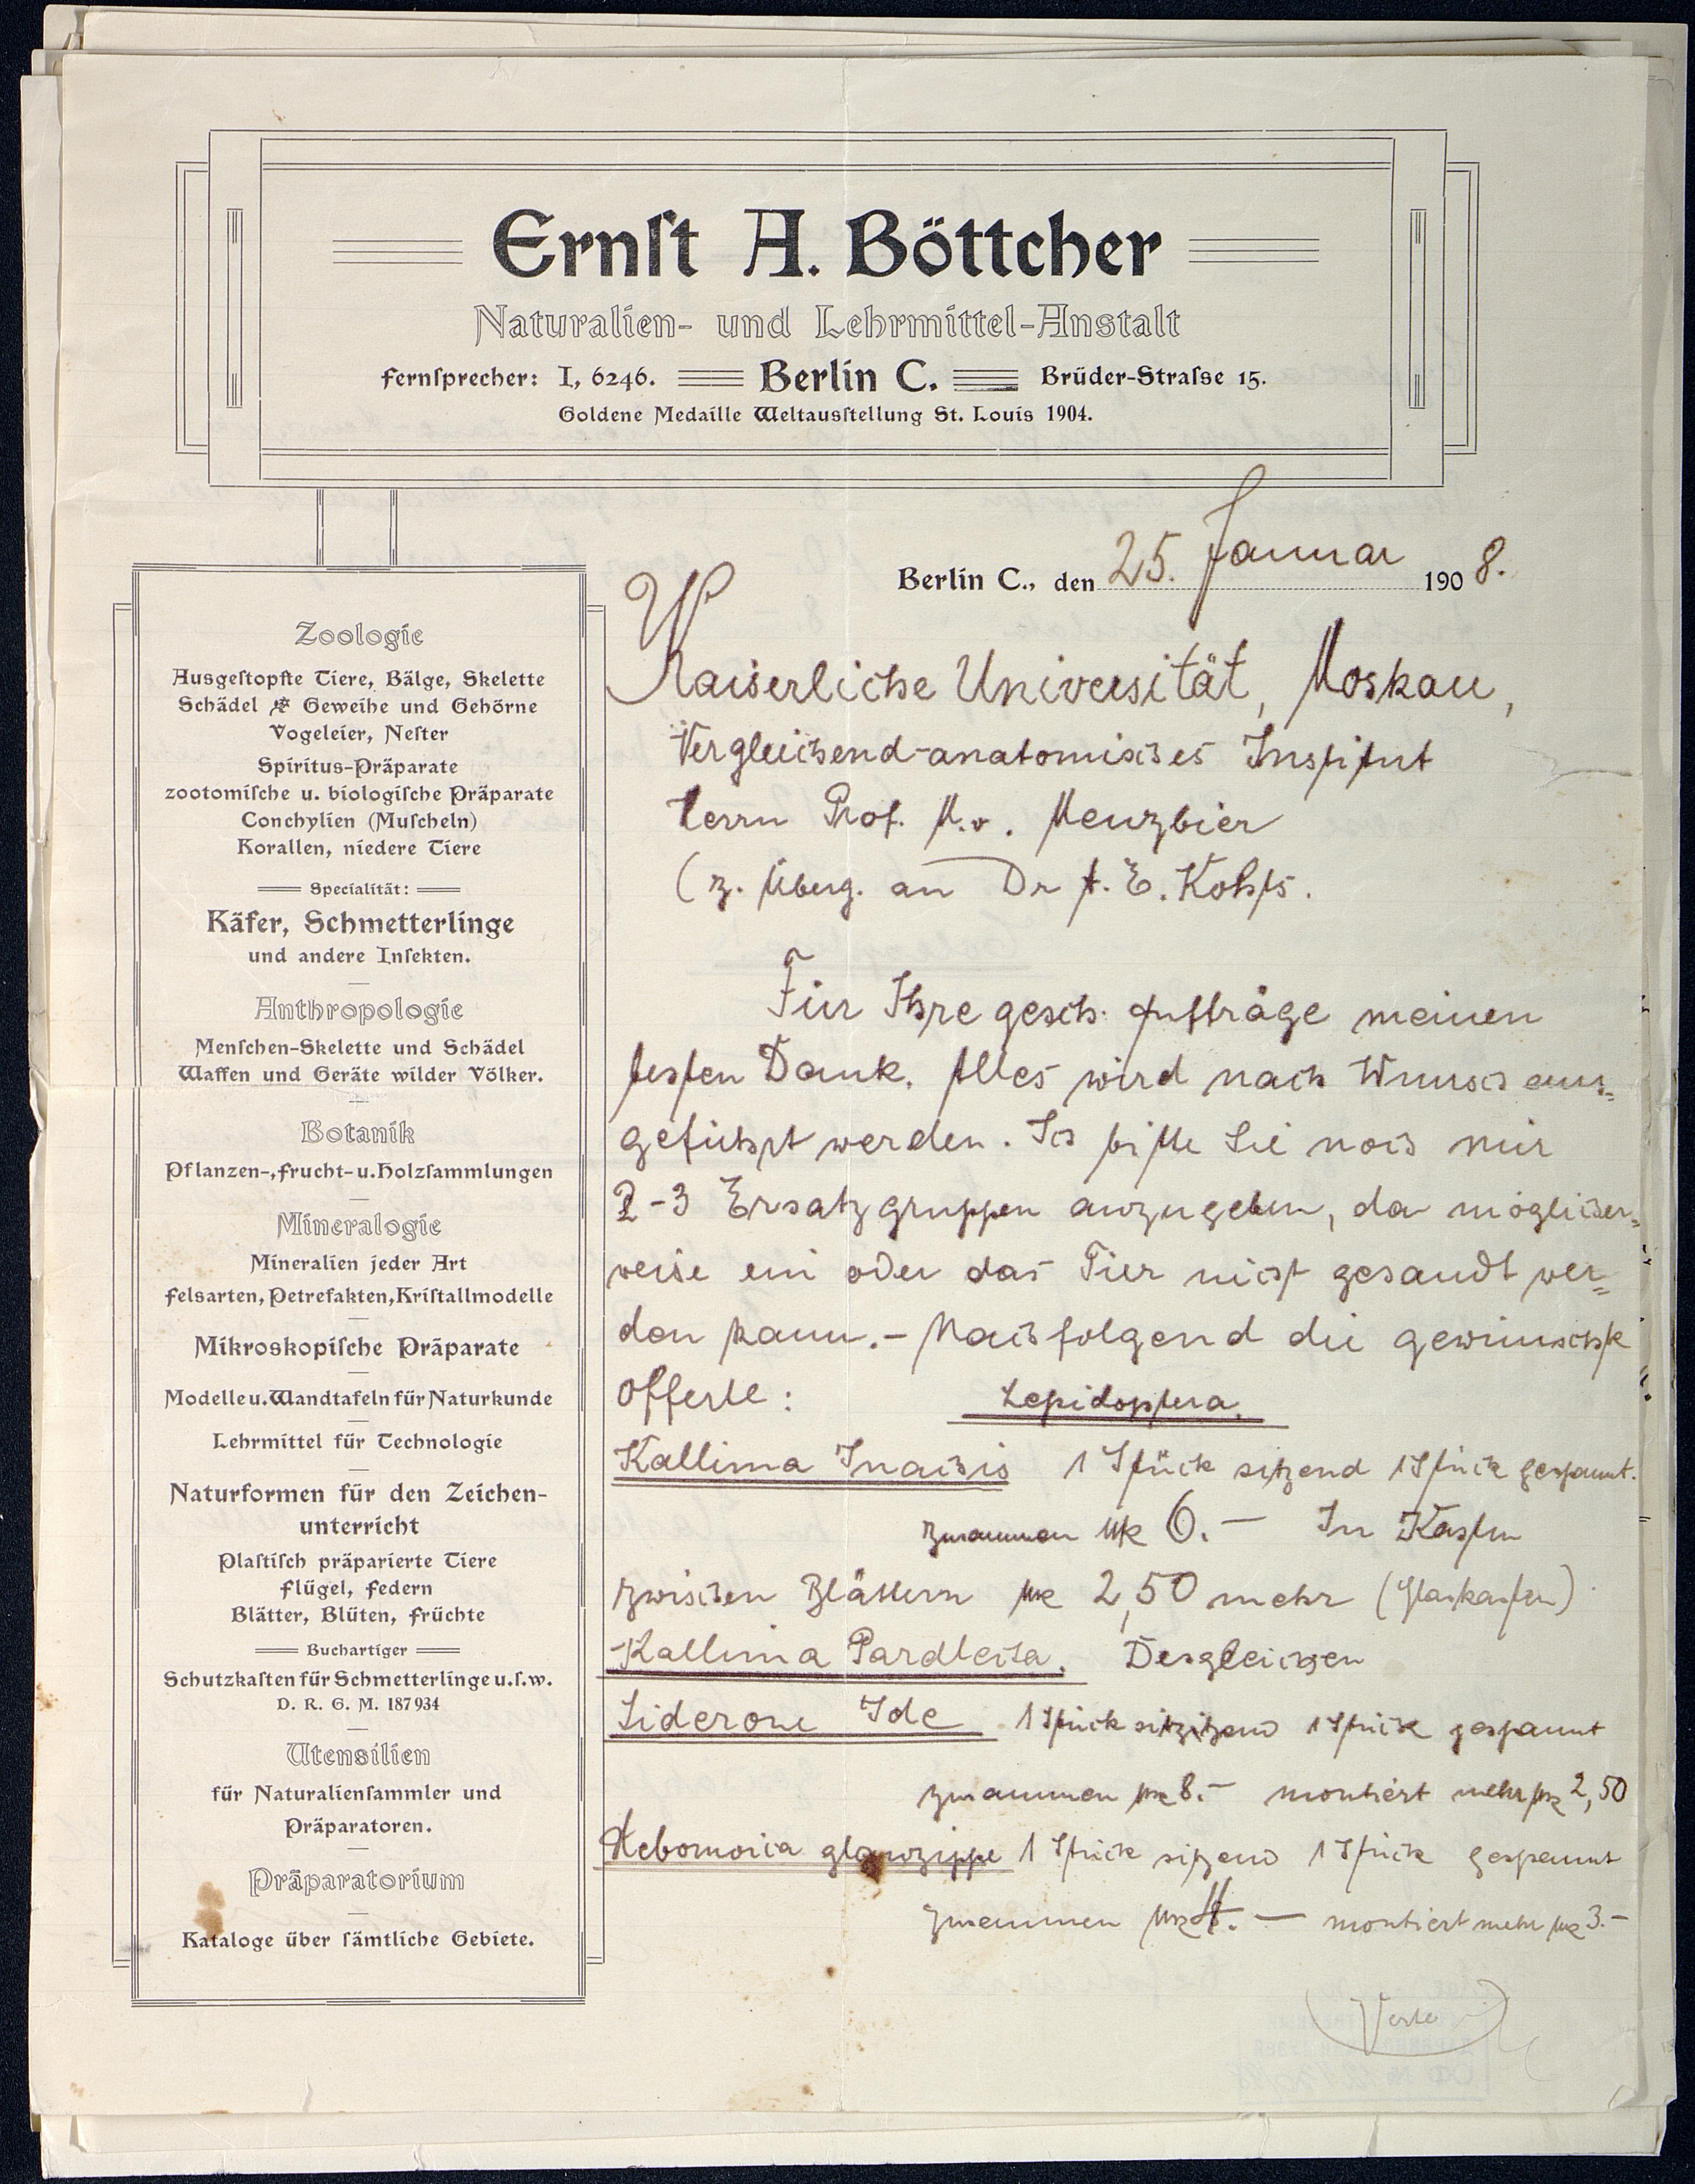 Ernſt A. Böttcher
Naturalien- und Lehrmittel-Anstalt
Fernſprecher: I, 6246. Berlin C. Brüder-Straſse 15.
Goldene Medaille Weltausſtellung St. Louis 1904.
Berlin C., den 25. Januar 1908.
Zoologie
Ausgeſtopfte Tiere, Bälge, Skelette
Schädel Geweihe und Gehörne
Vogeleier, Neſter
Spiritus-Präparate
zootomiſche u. biologiſche Präparate
Conchylien (Muſcheln)
Korallen, niedere Tiere
Specialität:
Käfer, Schmetterlinge
und andere Inſekten.
Anthropologie
Menſchen-Skelette und Schädel
Waffen und Geräte wilder Völker.
Botanik
Pflanzen-, Frucht- u. Holzſammlungen
Mineralogie
Mineralien jeder Art
Felsarten, Petrefakten, Kriſtallmodelle
Mikroskopiſche Präparate
Modelle u. Wandtafeln für Naturkunde
Lehrmittel für Technologie
Naturformen für den Zeichen-
unterricht
Plaſtiſch präparierte Tiere
Flügel, Federn
Blätter, Blüten, Früchte
Buchartiger
Schutzkaſten für Schmetterlinge u.ſ.w.
D. R. G. M. 187934
Utensilien
für Naturalienſammler und
Präparatoren.
Präparatorium
Kataloge über ſämtliche Gebiete.
Kaiserliche Universität, Moskau,
Vergleichend-anatomisches Institut
Herrn Prof. M. v. Menzbier
(z. Überg. an Dr A. E. Kohts.
Für Ihre gesch. Aufträge meinen
besten Dank. Alles wird nach Wunsch aus-
geführt werden. Ich bitte Sie noch mir
2-3 Ersatzgruppen anzugeben, da möglicher-
weise ein oder das Tier nicht gesandt wer-
den kann. - Nachfolgend die gewünschte
Offerte: Lepidoptera.
Kallima Inachis 1 Stück sitzend 1 Stück gespannt.
zusammen Mk 6.- In Kasten
zwischen Blättern Mk 2,50 mehr (Glaskasten)
Kallima Pardleita. Desgleichen
Siderone Ide 1 Stück sitzend 1 Stück gespannt
zusammen Mk 8.- montiert mehr Mk 2,50
Hebomoia glauzippe 1 Stück sitzend 1 Stück gespannt
zusammen Mk 4.- montiert mehr Mk 3.-